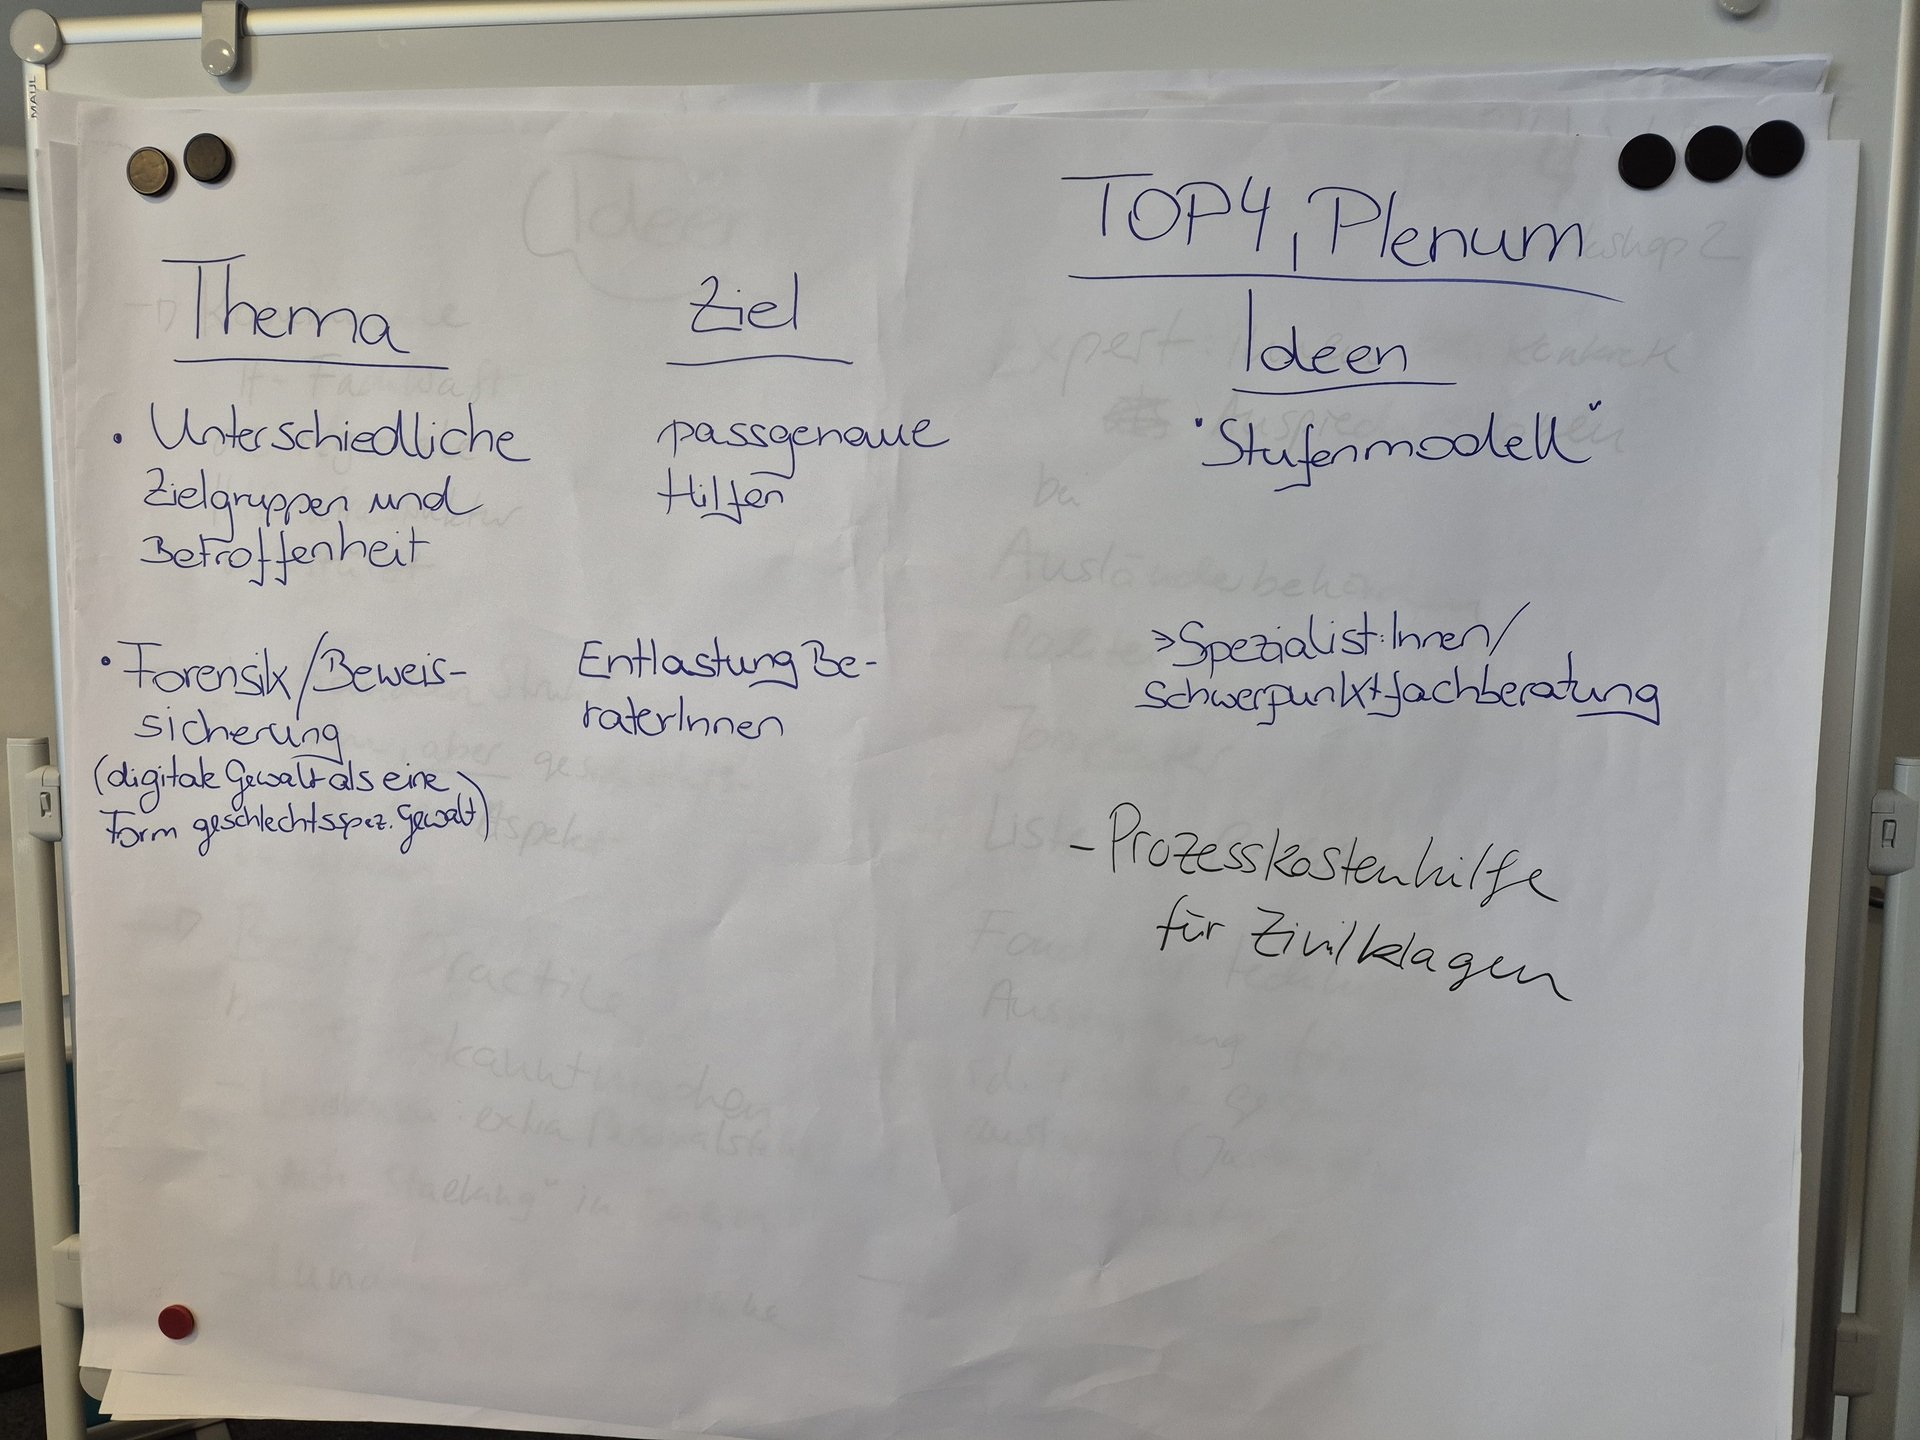 TOP4, Plenum
Thema
Ziel
Ideen
• Unterschiedliche
Zielgruppen und
Betroffenheit
passgenaue
Hilfen
"Stufenmodell"
• Forensik/Beweis-
sicherung
(digitale Gewalt als eine
Form geschlechtsspez. Gewalt)
Entlastung Be-
raterInnen
⇒ Spezialist:Innen/
schwerpunktfachberatung
- Prozesskostenhilfe
für Zivilklagen
MAUL